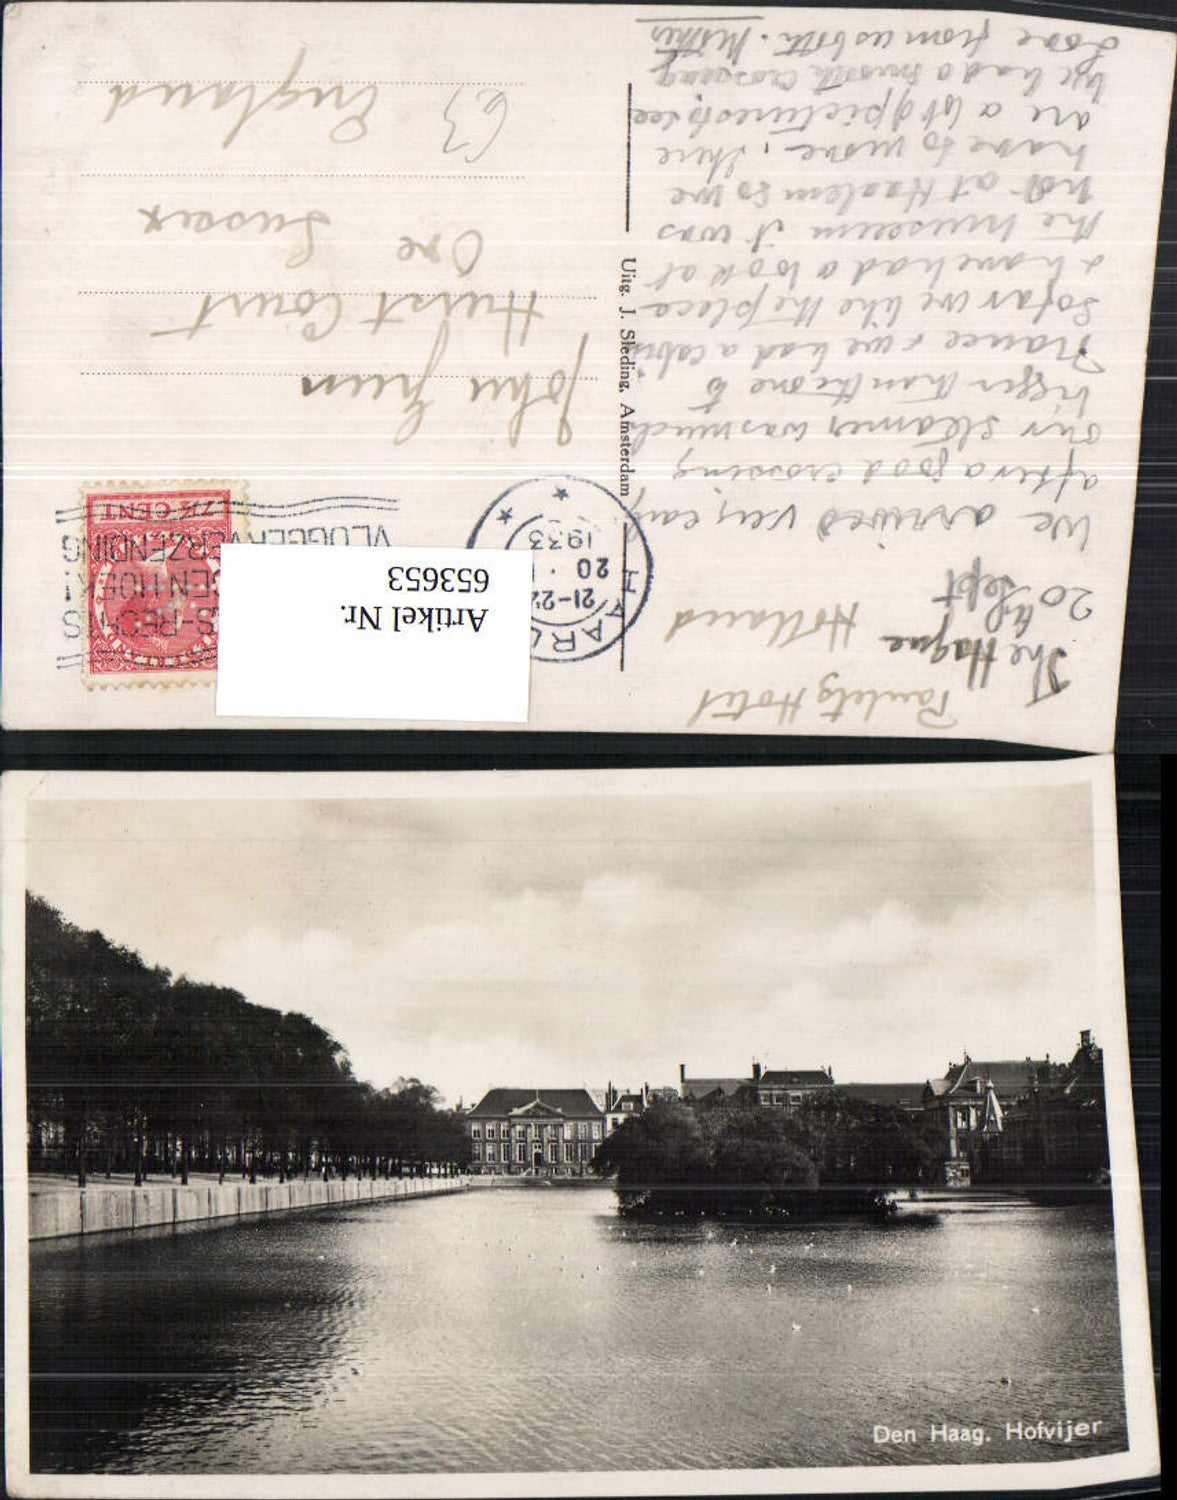 Paulets Hotel
The Hague Holland
20th Sept
We arrived very early
after a good crossing
our steamer was much
bigger than the one to
France & we had a cabin
So far we like the place
& have had a look at
the museum it was
not at Haalem so we
have to move. There
are a lot of pictures to see
We had a smooth crossing
Love from us both. Mother
Uitg. J. Sleding, Amsterdam
7½ CENT
VLUGGER VERZENDING
1933
20
21-22
HAARL
Artikel Nr.
653653
John Green
Hurst Court
Ore
Sussex
England
63
Den Haag. Hofvijer